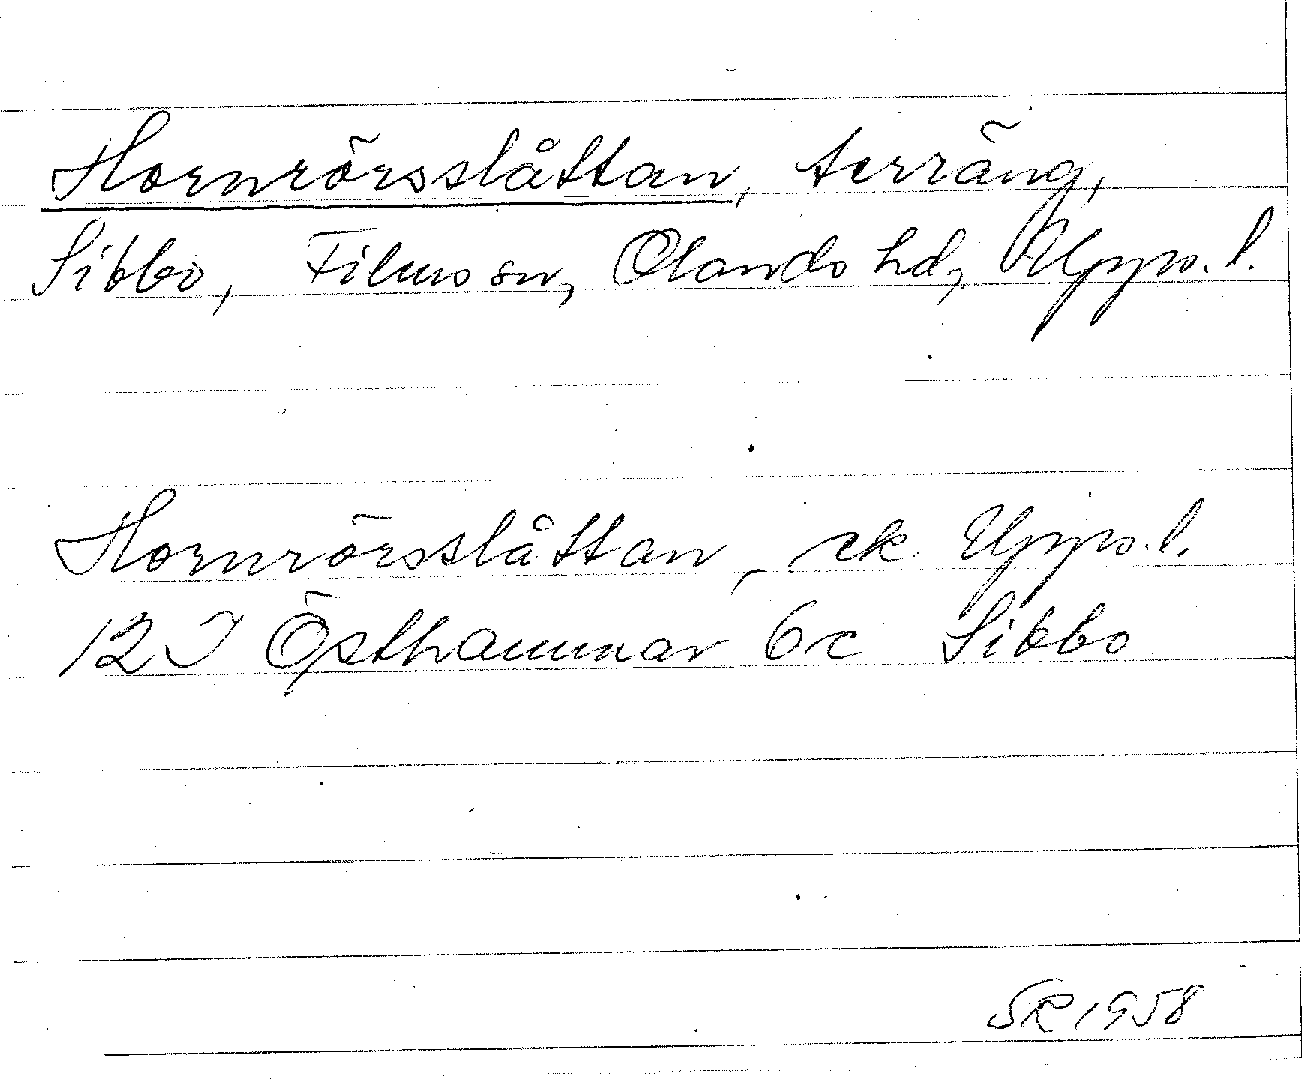 Hornrörsslåttan, terräng,
Sibbo, Films sn, Olands hd, Upps. l.
Hornrörsslåttan, ek. Upps. l.
12I Östhammar 6c Sibbo
SR 1958